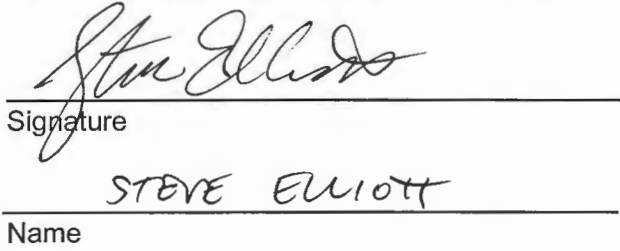 Steve Elliott
Signature
STEVE ELLIOTT
Name